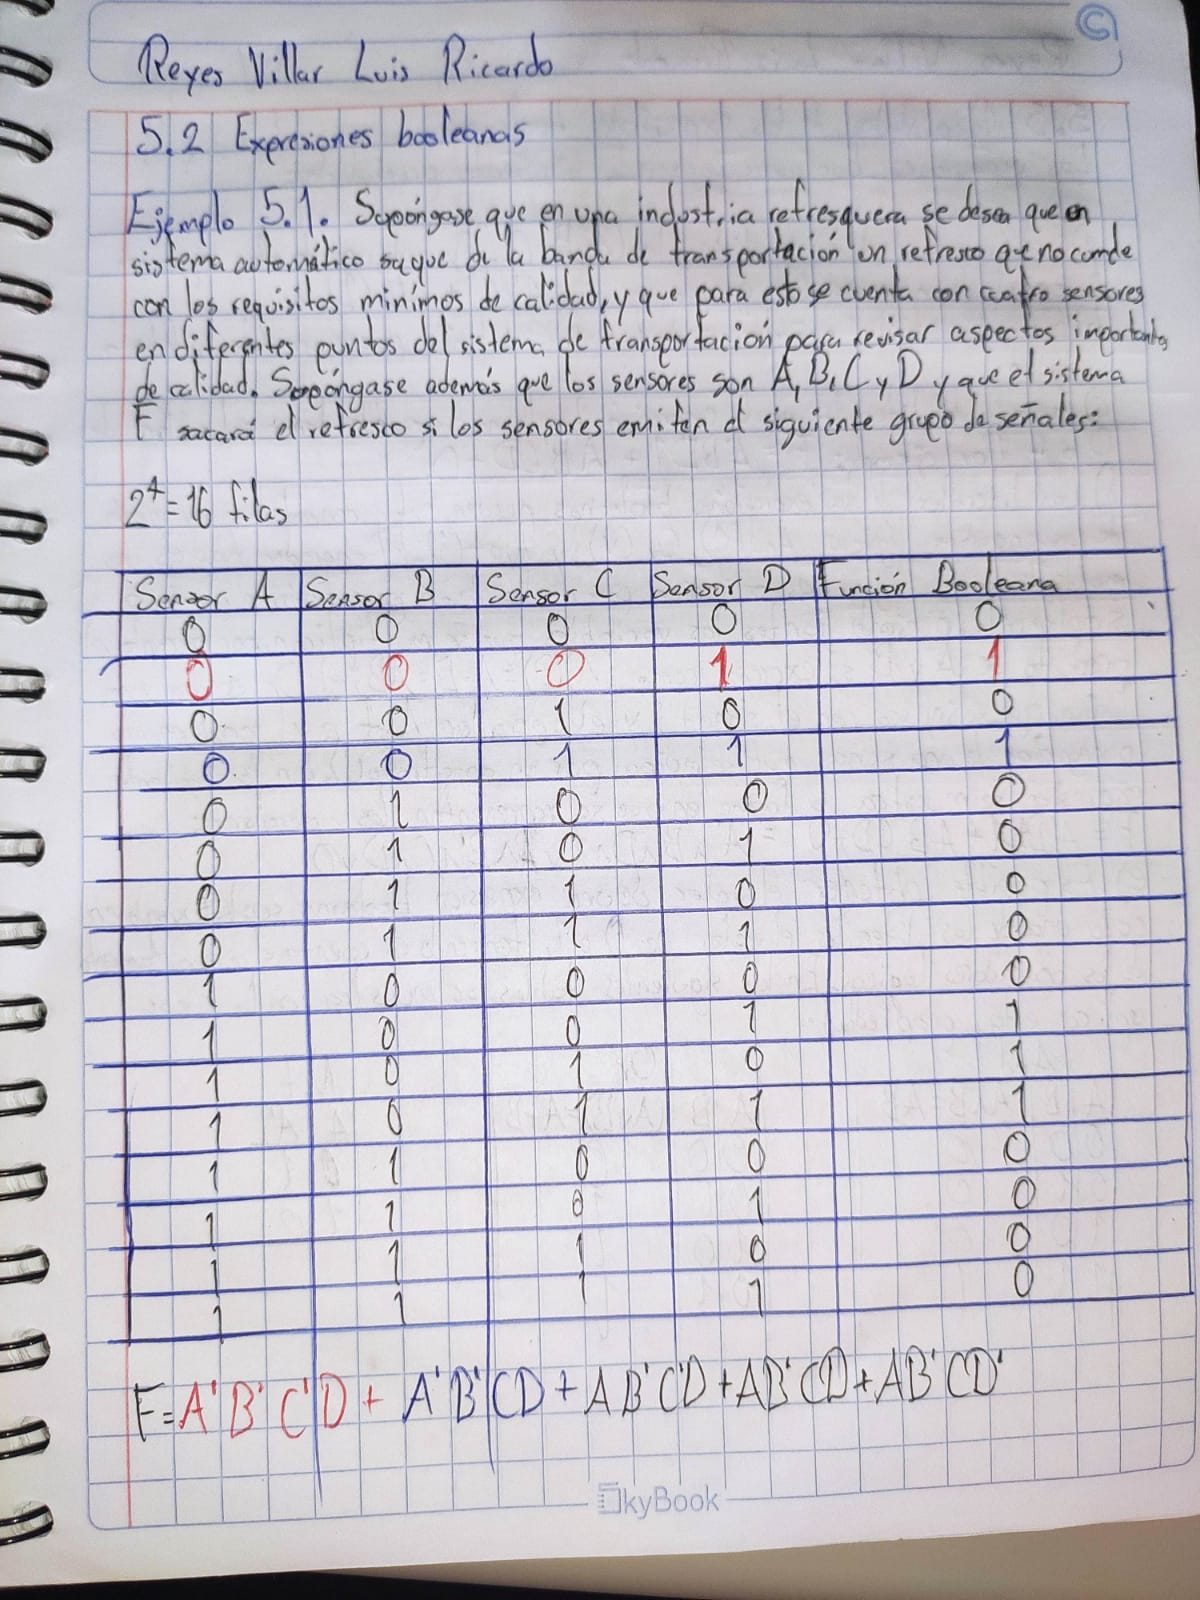 Reyes Villar Luis Ricardo
5.2 Expresiones booleanas
Ejemplo 5.1. Supóngase que en una industria refresquera se desea que en
sistema automático saque de la banda de transportación un refresco que no cumde
con los requisitos mínimos de calidad, y que para esto se cuenta con cuatro sensores
en diferentes puntos del sistema de transportación para revisar aspectos importantes
de calidad. Supóngase además que los sensores son A, B, C y D y que el sistema
F sacará el refresco si los sensores emiten el siguiente grupo de señales:
2⁴=16 filas
Sensor A Sensor B Sensor C Sensor D Función Booleana
0 0 0 0 0
0 0 0 1 1
0 0 1 0 0
0 0 1 1 1
0 1 0 0 0
0 1 0 1 0
0 1 1 0 0
0 1 1 1 0
1 0 0 0 0
1 0 0 1 1
1 0 1 0 1
1 0 1 1 1
1 1 0 0 0
1 1 0 1 0
1 1 1 0 0
1 1 1 1 0
F=A'B'C'D + A'B'CD + AB'C'D + AB'CD + AB'CD'
SkyBook